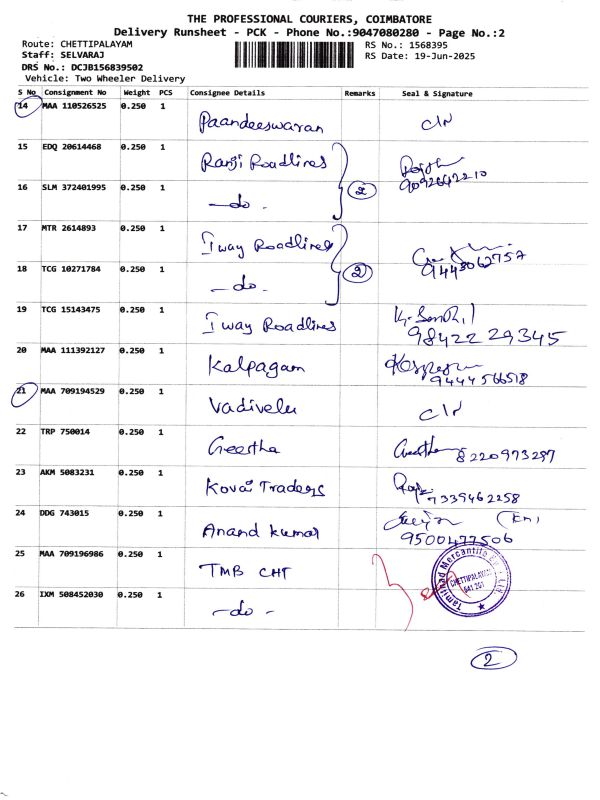 THE PROFESSIONAL COURIERS, COIMBATORE
Delivery Runsheet - PCK - Phone No.:9047080280 - Page No.:2
Route: CHETTIPALAYAM RS No.: 1568395
Staff: SELVARAJ RS Date: 19-Jun-2025
DRS No.: DCJB156839502
Vehicle: Two Wheeler Delivery
S No Consignment No Weight PCS Consignee Details Remarks Seal & Signature
14 MAA 110526525 0.250 1
Paandeeswaran C/N
15 EDQ 20614468 0.250 1
Ranji Roadlines
9092642210
16 SLM 372401995 0.250 1
2
-do-
17 MTR 2614893 0.250 1
Iway Roadlines
9443062757
18 TCG 10271784 0.250 1
2
-do-
19 TCG 15143475 0.250 1
Iway Roadlines
9842229345
20 MAA 111392127 0.250 1
Kalpagam
9444566518
21 MAA 709194529 0.250 1
Vadivelu C/N
22 TRP 750014 0.250 1
Geertha Geertha 8220973297
23 AKM 5083231 0.250 1
Kovai Traders
7339462258
24 DDG 743015 0.250 1
Anand kumar
9500477506
25 MAA 709196986 0.250 1
TMB CHT
Tamilnad Mercantile Bank Ltd
CHETTIPALAYAM
641 201
26 IXM 508452030 0.250 1
-do-
2